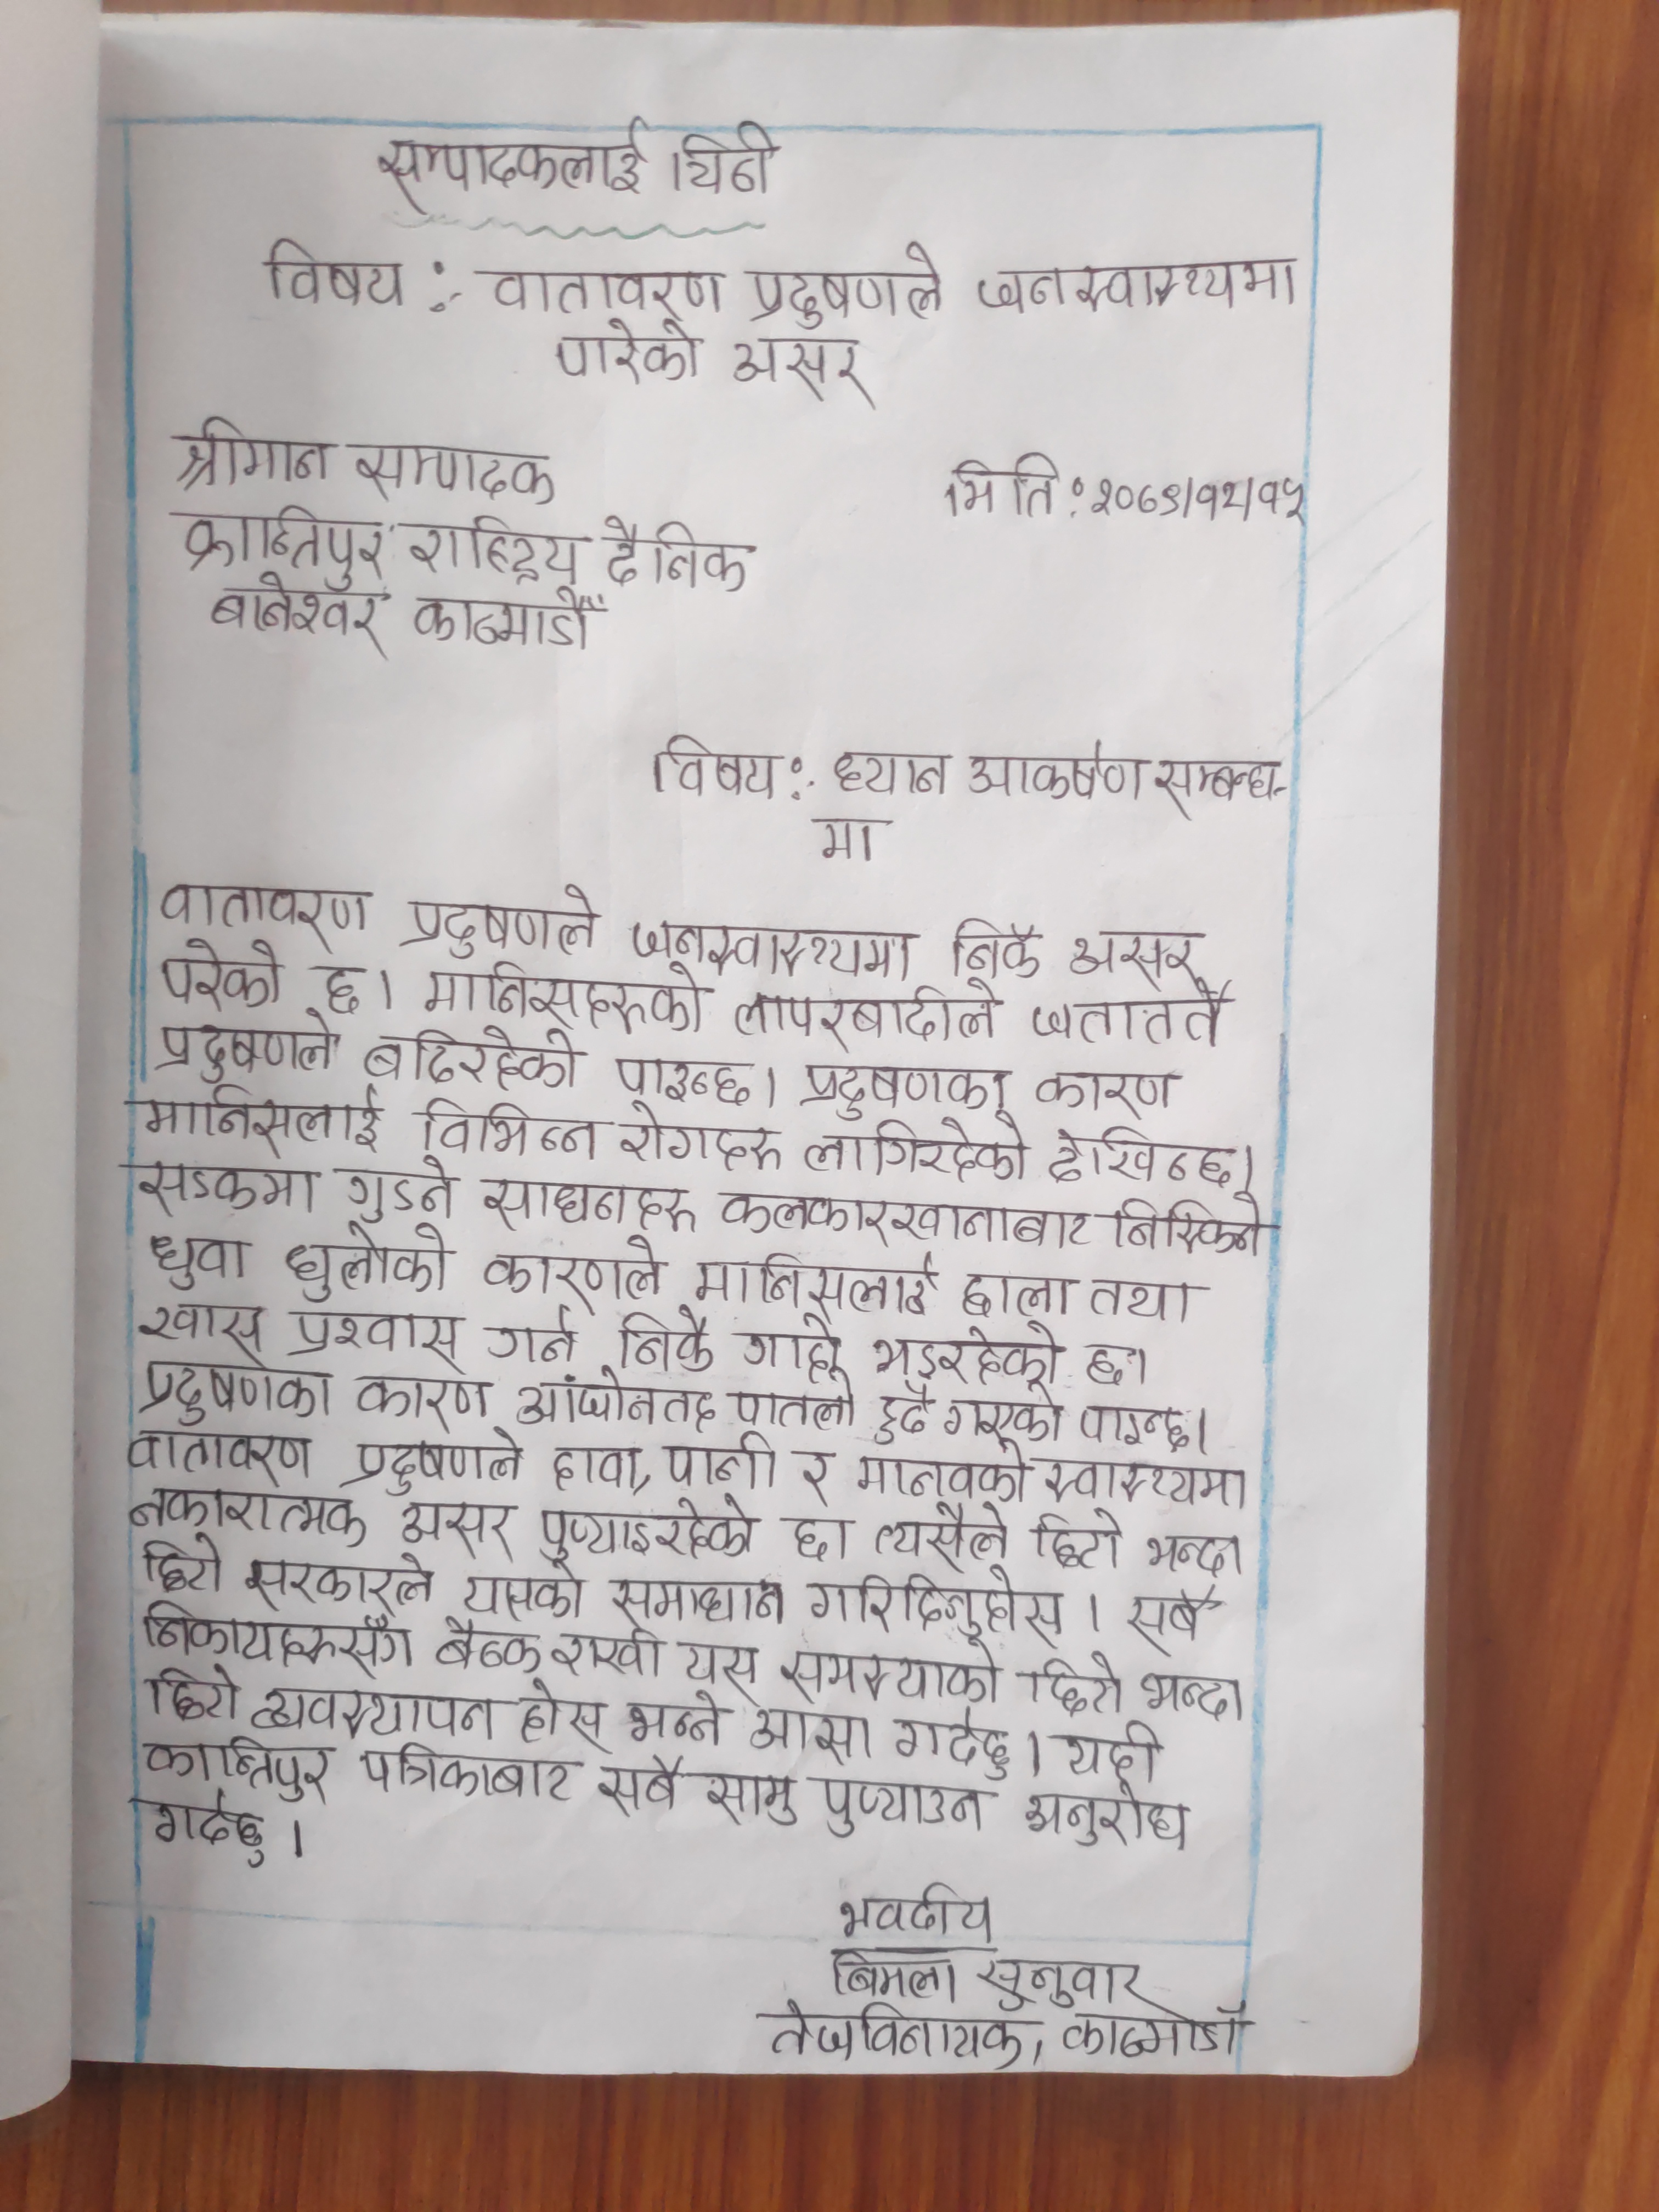 सम्पादकलाई चिठी
विषय :- वातावरण प्रदुषणले जनस्वास्थ्यमा
पारेको असर
श्रीमान सम्पादक
मिति : २०७९/१२/१५
कान्तिपुर राष्ट्रिय दैनिक
बानेश्वर काठमाडौँ
विषय :- ध्यान आकर्षण सम्बन्ध-
मा
वातावरण प्रदुषणले जनस्वास्थ्यमा निकै असर
परेको छ। मानिसहरुको लापरबाहीले जताततै
प्रदुषणले बढिरहेको पाइन्छ। प्रदुषणका कारण
मानिसलाई विभिन्न रोगहरु लागिरहेको देखिन्छ।
सडकमा गुडने साधनहरु कलकारखानाबाट निस्किने
धुवा धुलोको कारणले मानिसलाई छाला तथा
स्वास प्रश्वास गर्न निकै गाह्रो भइरहेको छ।
प्रदुषणका कारण ओजोनतह पातलो हुदै गएको पाइन्छ।
वातावरण प्रदुषणले हावा, पानी र मानवको स्वास्थ्यमा
नकारात्मक असर पुर्‍याइरहेको छ। त्यसैले छिटो भन्दा
छिटो सरकारले यसको समाधान गरिदिनुहोस । सबै
निकायहरुसँग बैठक राखी यस समस्याको छिटो भन्दा
छिटो व्यवस्थापन होस भन्ने आसा गर्दछु । यही
कान्तिपुर पत्रिकाबाट सबै सामु पुर्‍याउन अनुरोध
गर्दछु ।
भवदीय
बिमला सुनुवार
तेजविनायक, काठमाडौँ